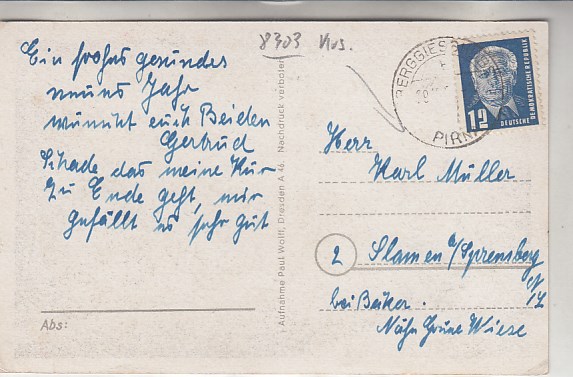 8303 Krs.
Ein frohes gesundes
neues Jahr
wünscht euch Beiden
Gertrud
Schade das meine Kur
zu Ende geht, mir
gefällt es sehr gut
Abs:
Aufnahme Paul Wolff, Dresden A 46. Nachdruck verboten
BERGGIESS
PIRN
12
DEUTSCHE
DEMOKRATISCHE REPUBLIK
Herr
Karl Müller
2 Slamen b/Spremberg
N/L
bei Beiker.
Nähe Grüne Wiese